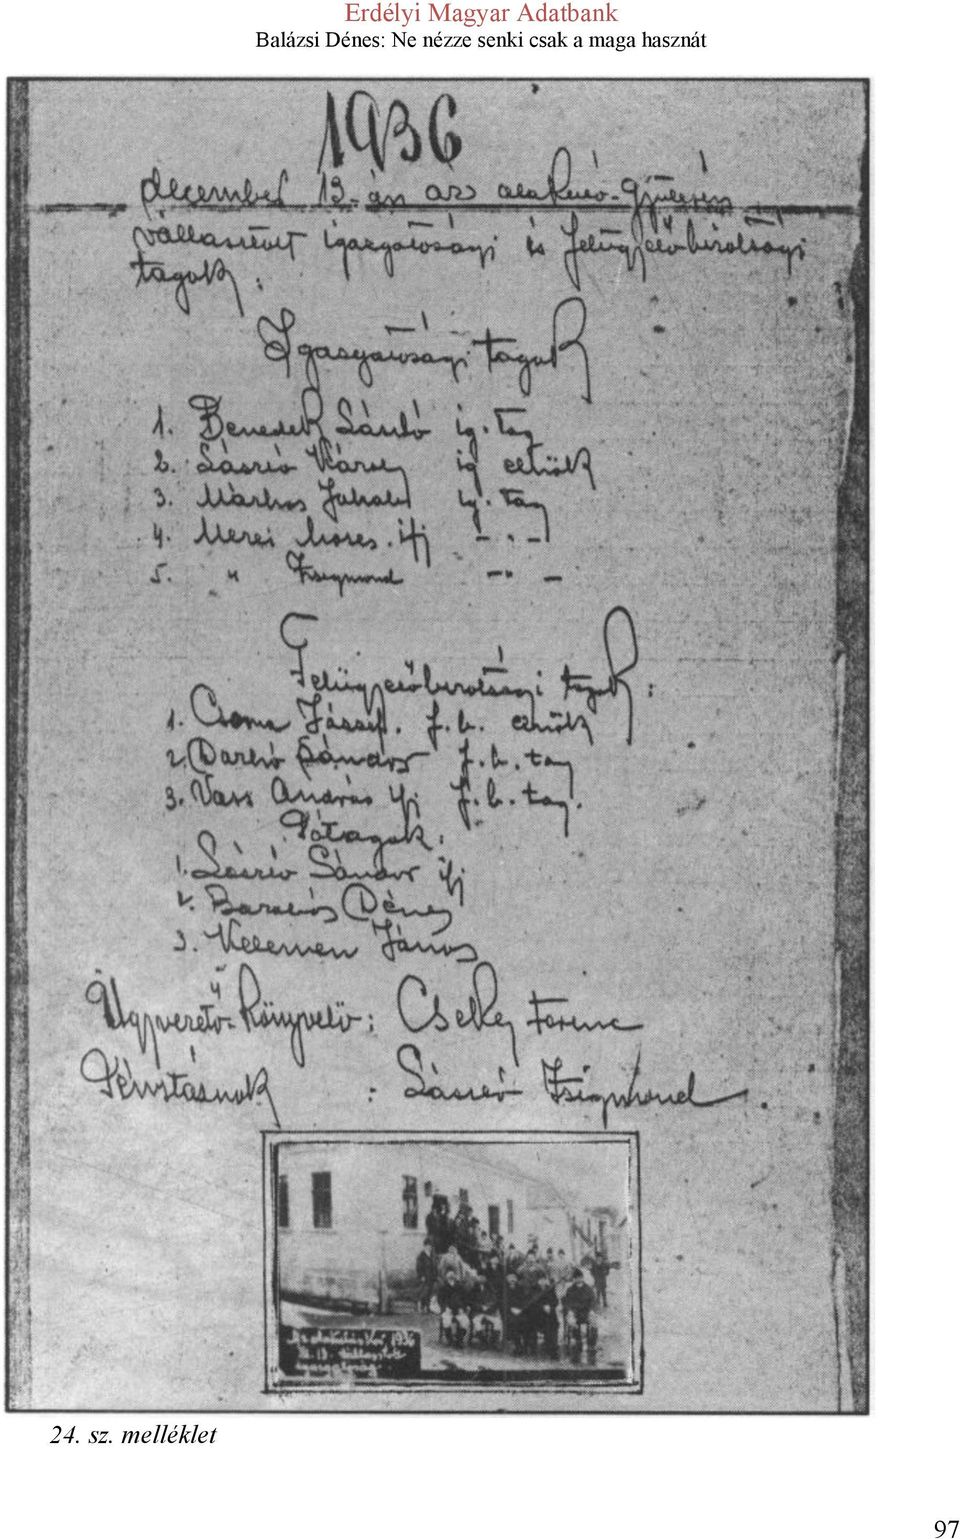 Erdélyi Magyar Adatbank
Balázsi Dénes: Ne nézze senki csak a maga hasznát
1936
december 13-án az alakuló-gyülésen
vállasztott igazgatósági és felügyelőbizottsági
tagok:
Igazgatósági tagok
1. Benedek László ig. tag
2. László Károly ig elnök
3. Márkos ig. tag
4. Merei Mózes. ifj -"-
5. " Zsigmond -"-
Felügyelőbizottsági tagok:
1. Csoma József. f. b. elnök
2. Darkó Sándor f. b. tag
3. Vass András ifj f. b. tag.
Póttagok.
1. László Sándor ifj
2. Dénes
3. Kelemen János
Ügyvezető-könyvelő: Csekey Ferenc
Pénztásnok : László Zsigmond.
1936
24. sz. melléklet
97